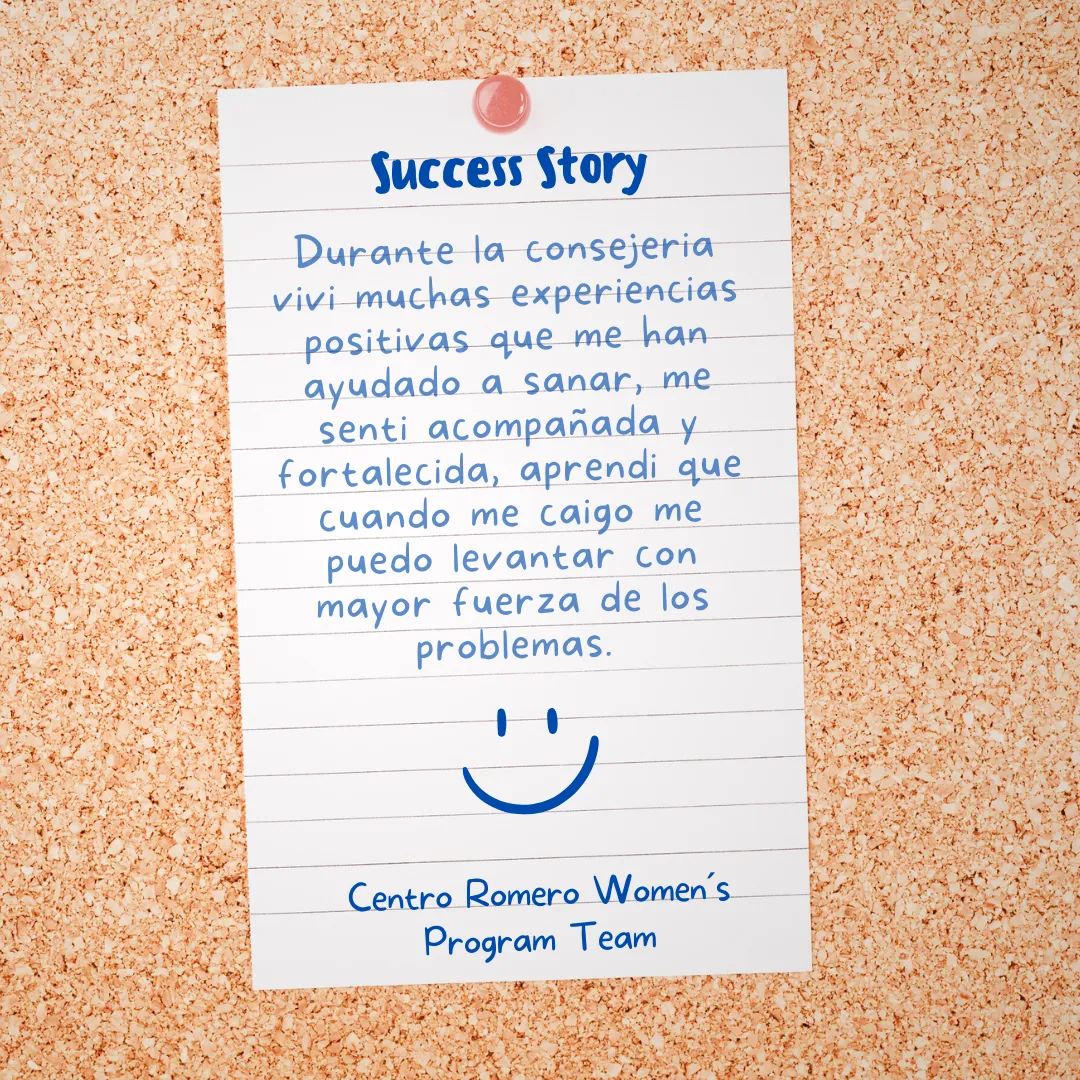 Success Story
Durante la consejeria
vivi muchas experiencias
positivas que me han
ayudado a sanar, me
senti acompañada y
fortalecida, aprendi que
cuando me caigo me
puedo levantar con
mayor fuerza de los
problemas.
Centro Romero Women´s
Program Team